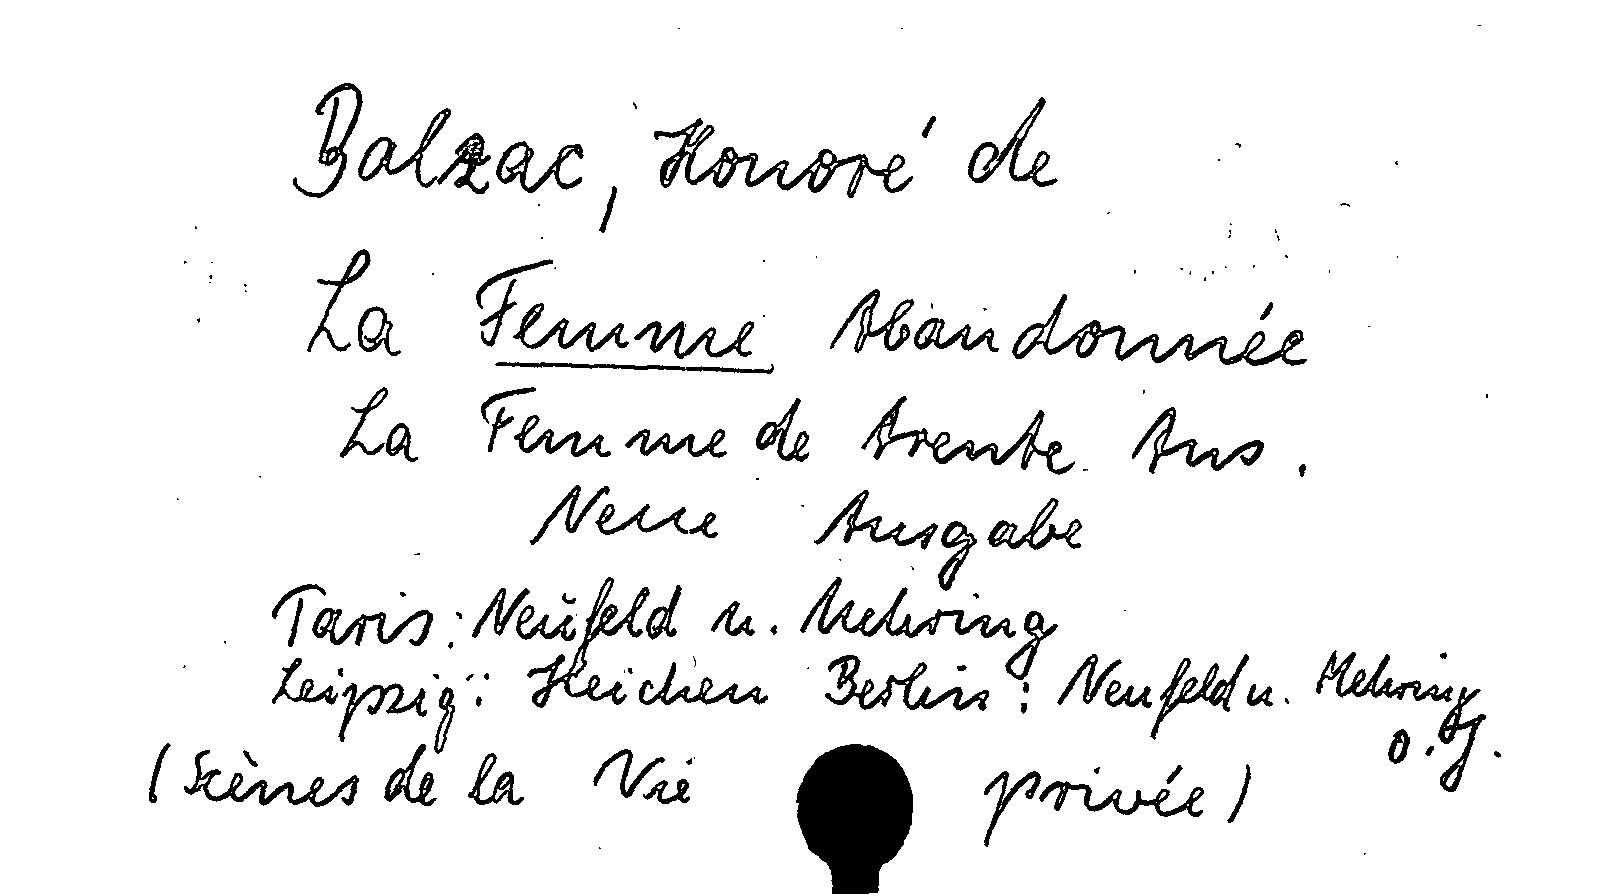 Balzac, Honoré de
La Femme Abandonnée
La Femme de trente Ans.
Neue Ausgabe
Paris: Neufeld u. Mehring
Leipzig: Heichen Berlin: Neufeld u. Mehring
o. J.
(Scènes de la Vie privée)